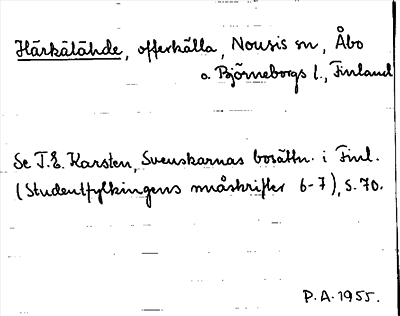 Härkälähde, offerkälla, Nousis sn, Åbo
o. Björneborgs l., Finland
Se T.E. Karsten, Svenskarnas bosättn. i Finl.
(Studentfylkingens småskrifter 6-7), s. 70.
P.A. 1955.